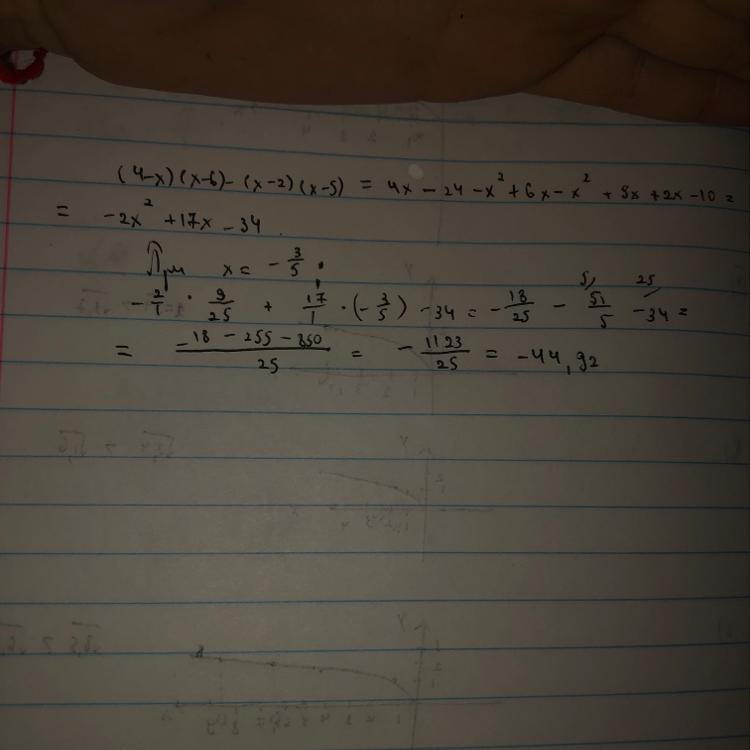 (4-x)(x-6)-(x-2)(x-5) = 4x - 24 - x² + 6x - x² + 5x + 2x - 10 =
= -2x² + 17x - 34
При x = -3/5 :
-2/1 · 9/25 + 17/1 · (-3/5) - 34 = -18/25 - 51/5 - 34 =
= (-18 - 255 - 850)/25 = -1123/25 = -44,92